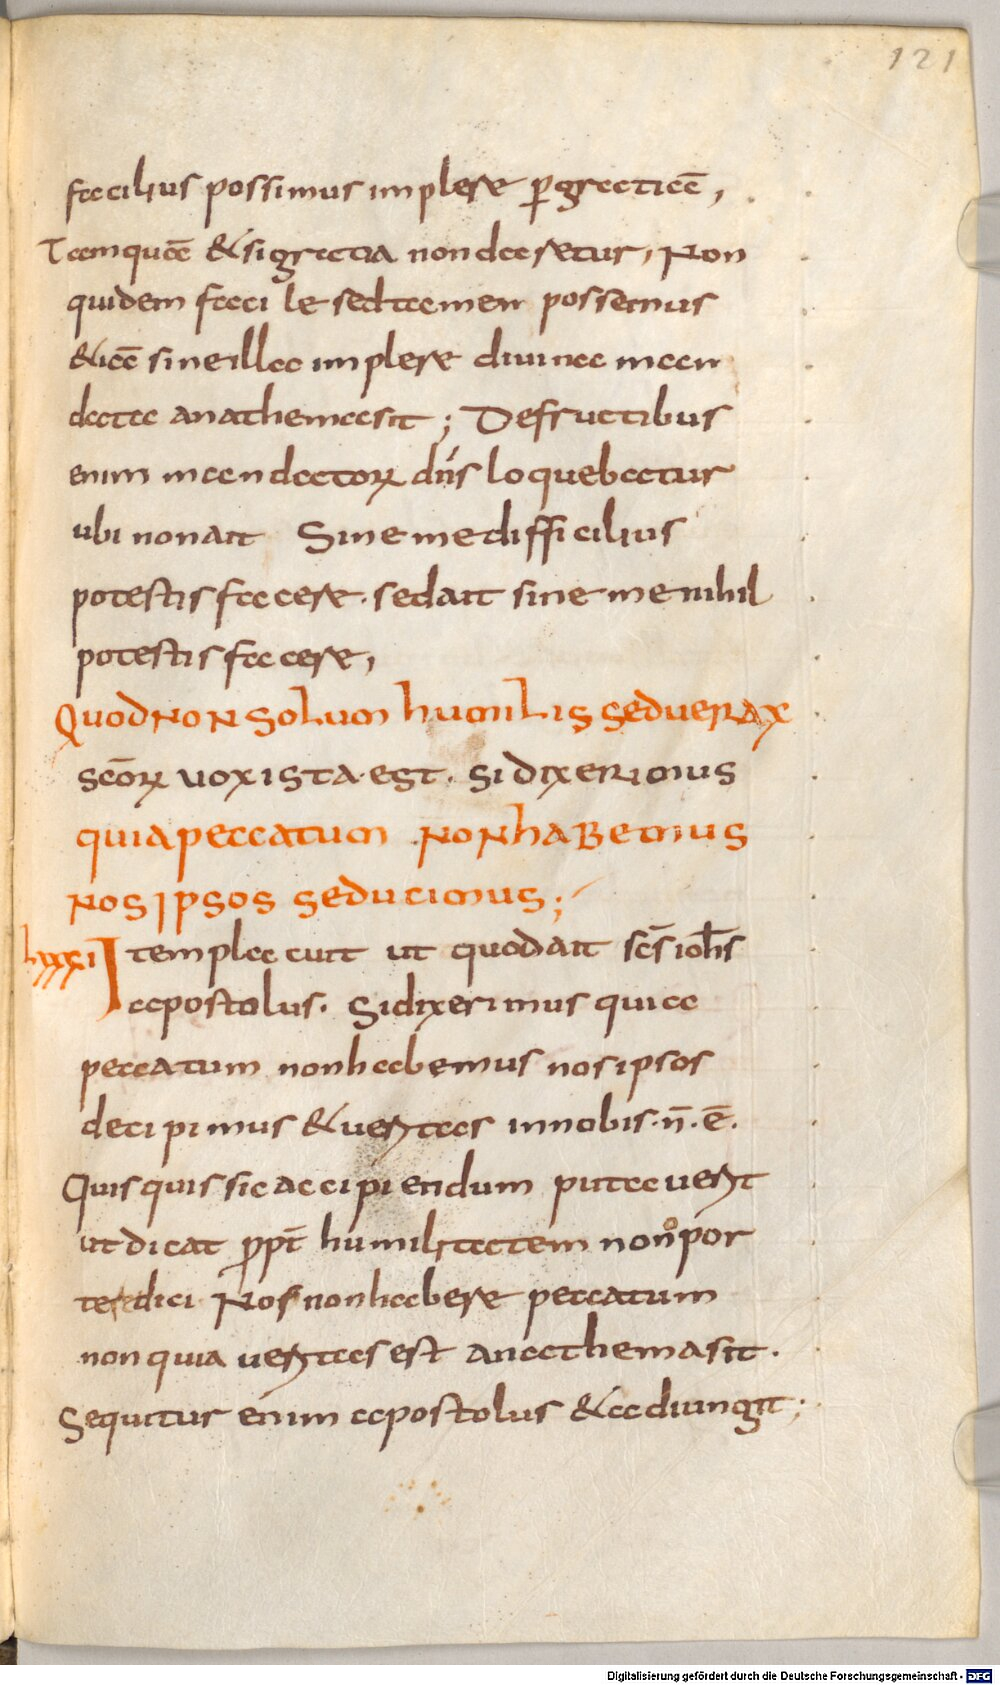 121
facilius possimus implere ꝑgratiā,
Tamquā & si gratia non daretur, Non
quidem facile sed tamen possemus
& iā sine illa implere diuina man
data anathema sit; De fructibus
enim mandatoꝝ dn̄s loquebatur
ubi non ait Sine me difficilius
potestis facere. sed ait sine me nihil
potestis facere,
Quod non solum humilis sed uerax
sc̄oꝝ uox ista est. si dixerimus
quia peccatum non habemus
nos ipsos seducimus;
lxxxi Item placuit ut quod ait sc̄s ioh̄s
apostolus. Si dixerimus quia
peccatum non habemus nos ipsos
decipimus & ueritas in nobis. n̄. ē.
Quisquis sic accipiendum putauerit
ut dicat ꝓpt̄ humilitatem non opor
tere dici Nos non habere peccatum
non quia ueritas est anathema sit.
Sequitur enim apostolus & adiungit;
Digitalisierung gefördert durch die Deutsche Forschungsgemeinschaft - DFG